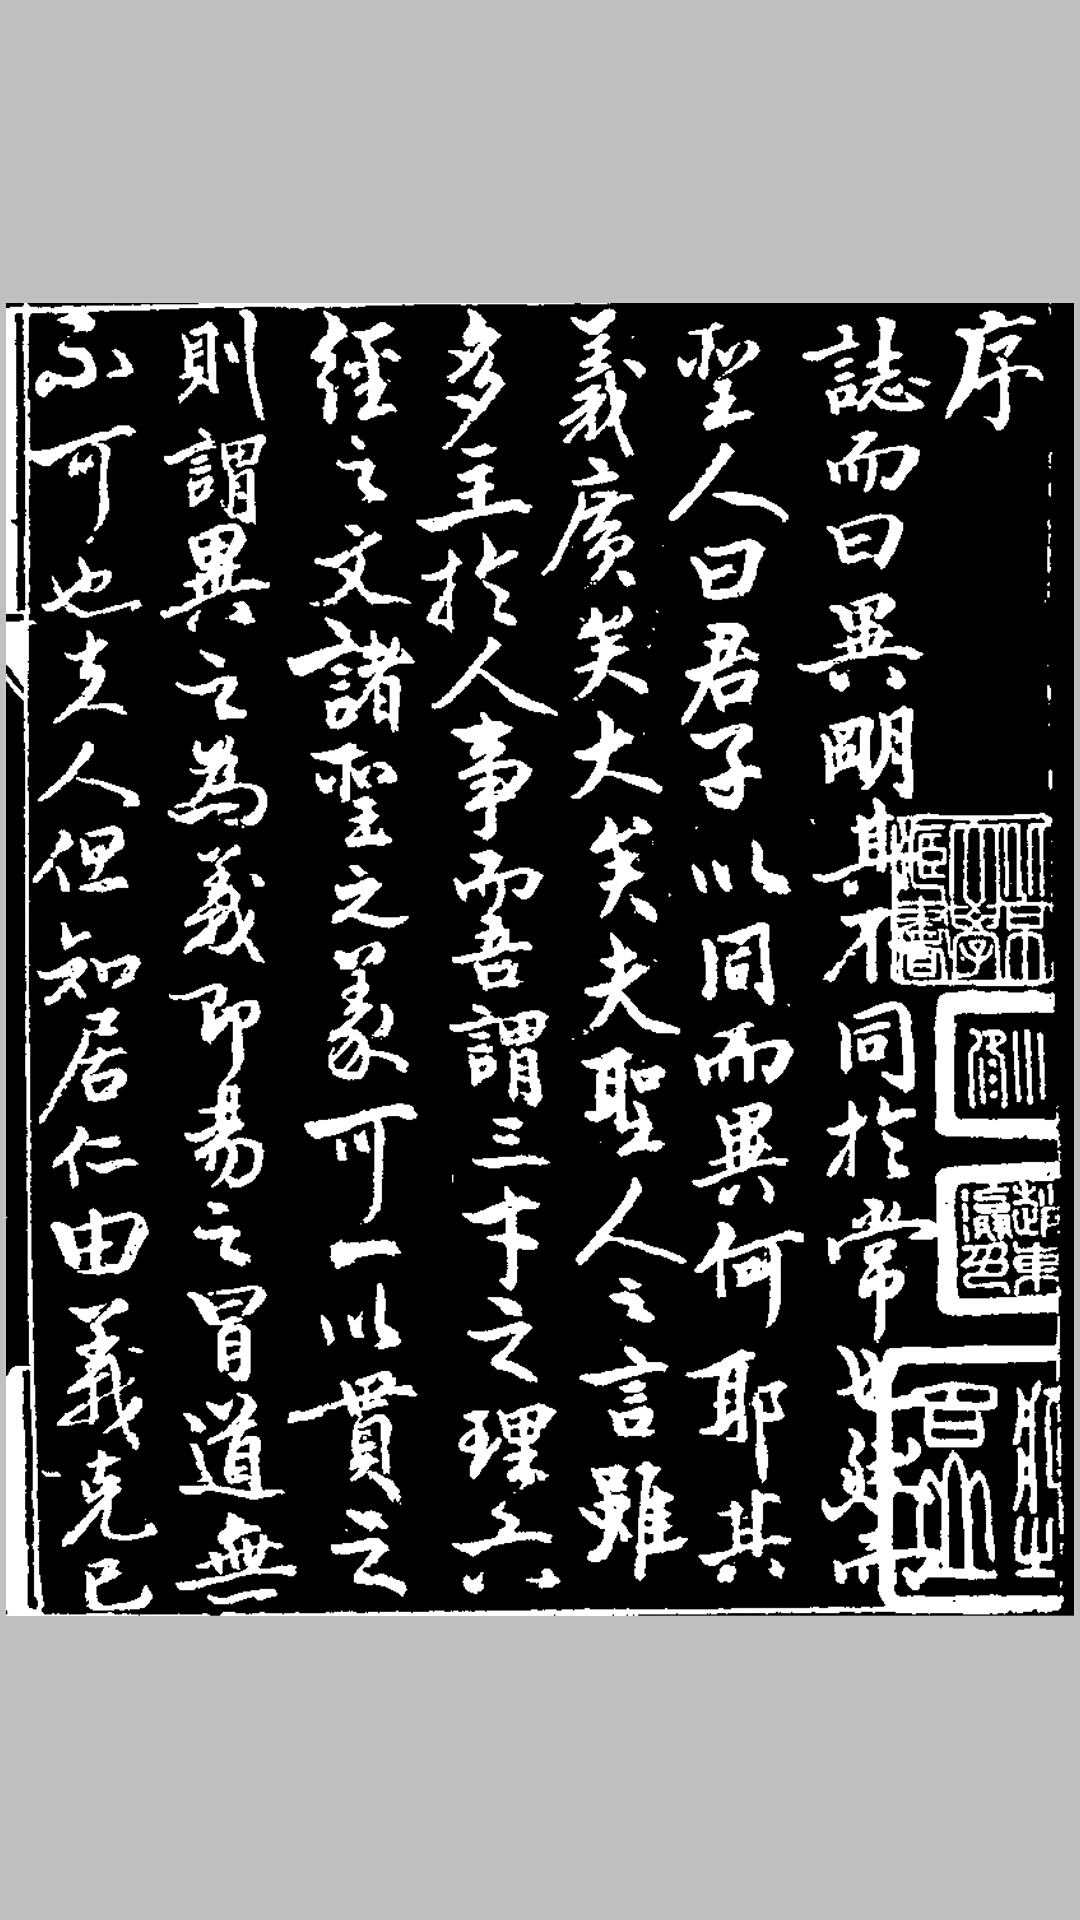 序
誌而曰異明其不同於常也然而
聖人曰君子以同而異何耶其
義廣矣大矣夫聖人之言雖
多主於人事而吾謂三才之理六
經之文諸聖之義可一以貫之
則謂異之為義即易之冒道無
不可也夫人但知居仁由義克己
北京大學藏書